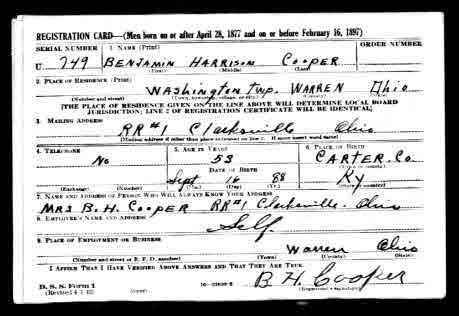 REGISTRATION CARD—(Men born on or after April 28, 1877 and on or before February 16, 1897)
SERIAL NUMBER 1. NAME (Print) ORDER NUMBER
U 749 BENJAMIN HARRISON COOPER
(First) (Middle) (Last)
2. PLACE OF RESIDENCE (Print)
WASHINGTON TWP. WARREN Ohio
(Number and street) (Town, township, village, or city) (County) (State)
[THE PLACE OF RESIDENCE GIVEN ON THE LINE ABOVE WILL DETERMINE LOCAL BOARD
JURISDICTION; LINE 2 OF REGISTRATION CERTIFICATE WILL BE IDENTICAL]
3. MAILING ADDRESS
RR #1 Clarksville Ohio
[Mailing address if other than place indicated on line 2. If same insert word same]
4. TELEPHONE 5. AGE IN YEARS 6. PLACE OF BIRTH
No 53 CARTER. Co.
DATE OF BIRTH (Town or county)
Sept 16 88 Ky
(Exchange) (Number) (Mo.) (Day) (Yr.) (State or country)
7. NAME AND ADDRESS OF PERSON WHO WILL ALWAYS KNOW YOUR ADDRESS
MRS B. H. COOPER RR #1 Clarksville. Ohio
8. EMPLOYER'S NAME AND ADDRESS
Self.
9. PLACE OF EMPLOYMENT OR BUSINESS
Warren Ohio
(Number and street or R. F. D. number) (Town) (County) (State)
I AFFIRM THAT I HAVE VERIFIED ABOVE ANSWERS AND THAT THEY ARE TRUE.
B H Cooper
D. S. S. Form 1
(Revised 4-1-42) (over) (Registrant's signature)